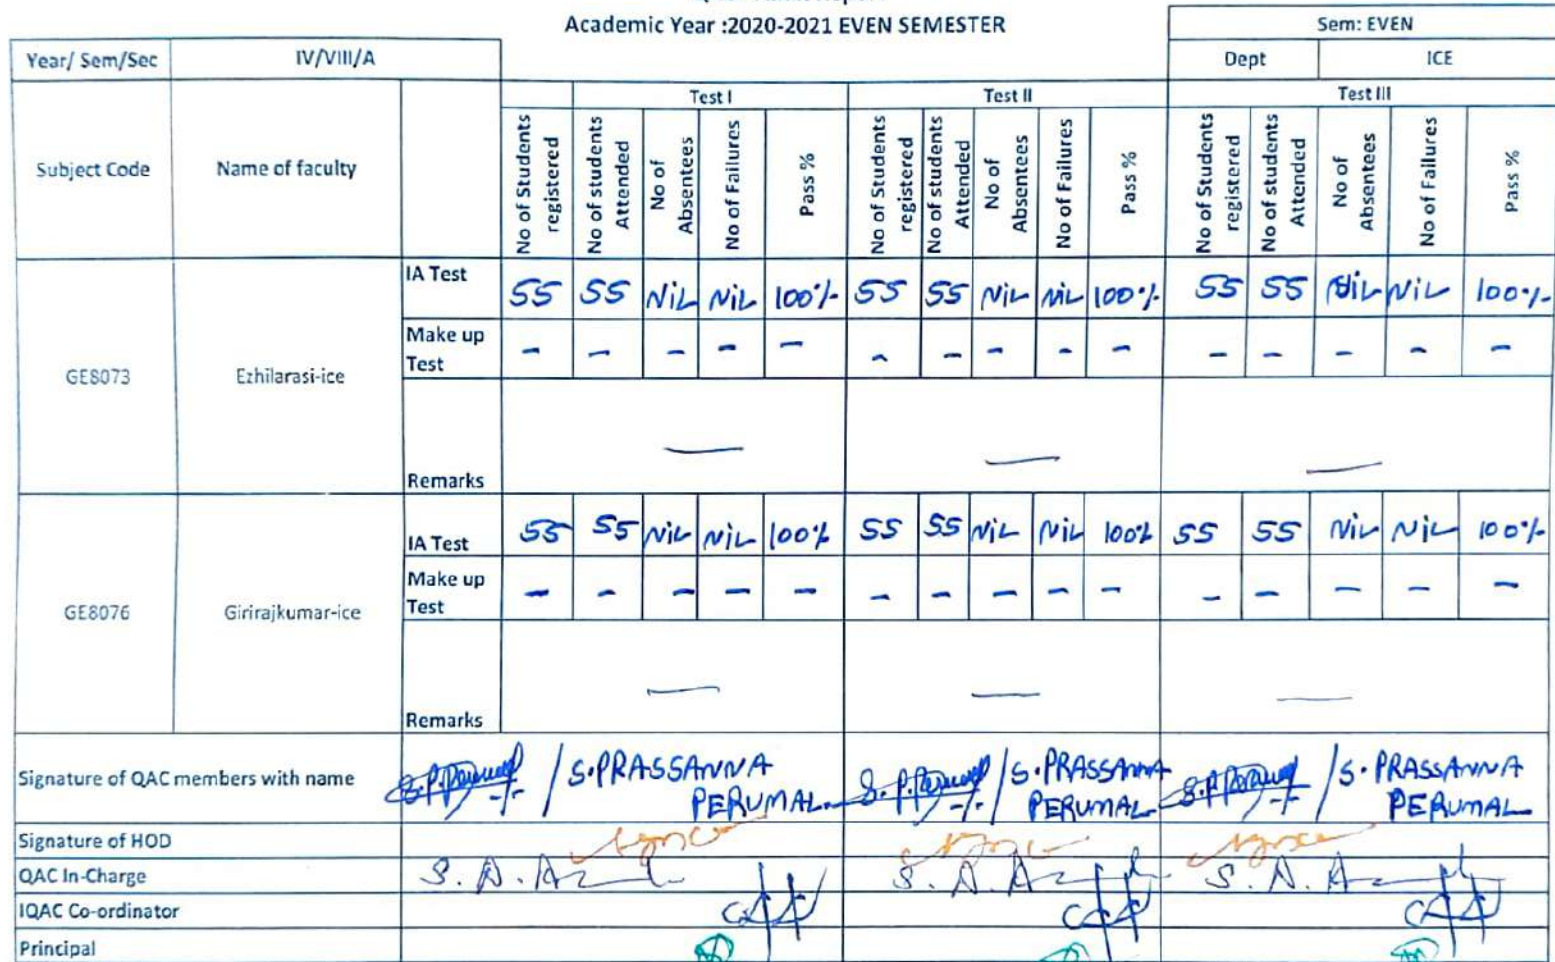 Academic Year :2020-2021 EVEN SEMESTER
Sem: EVEN
Year/ Sem/Sec IV/VIII/A Dept ICE
Test I Test II Test III
Subject Code Name of faculty No of Students registered No of students Attended No of Absentees No of Failures Pass % No of Students registered No of students Attended No of Absentees No of Failures Pass % No of Students registered No of students Attended No of Absentees No of Failures Pass %
IA Test 55 55 NiL NiL 100% 55 55 NiL NiL 100% 55 55 NiL NiL 100%
GE8073 Ezhilarasi-ice
Make up Test - - - - - - - - - - - - - - -
Remarks — — —
IA Test 55 55 NiL NiL 100% 55 55 NiL NiL 100% 55 55 NiL NiL 100%
GE8076 Girirajkumar-ice
Make up Test - - - - - - - - - - - - - - -
Remarks — — —
Signature of QAC members with name / S.PRASSANNA PERUMAL / S.PRASSANNA PERUMAL / S.PRASSANNA PERUMAL
Signature of HOD
QAC In-Charge
IQAC Co-ordinator
Principal